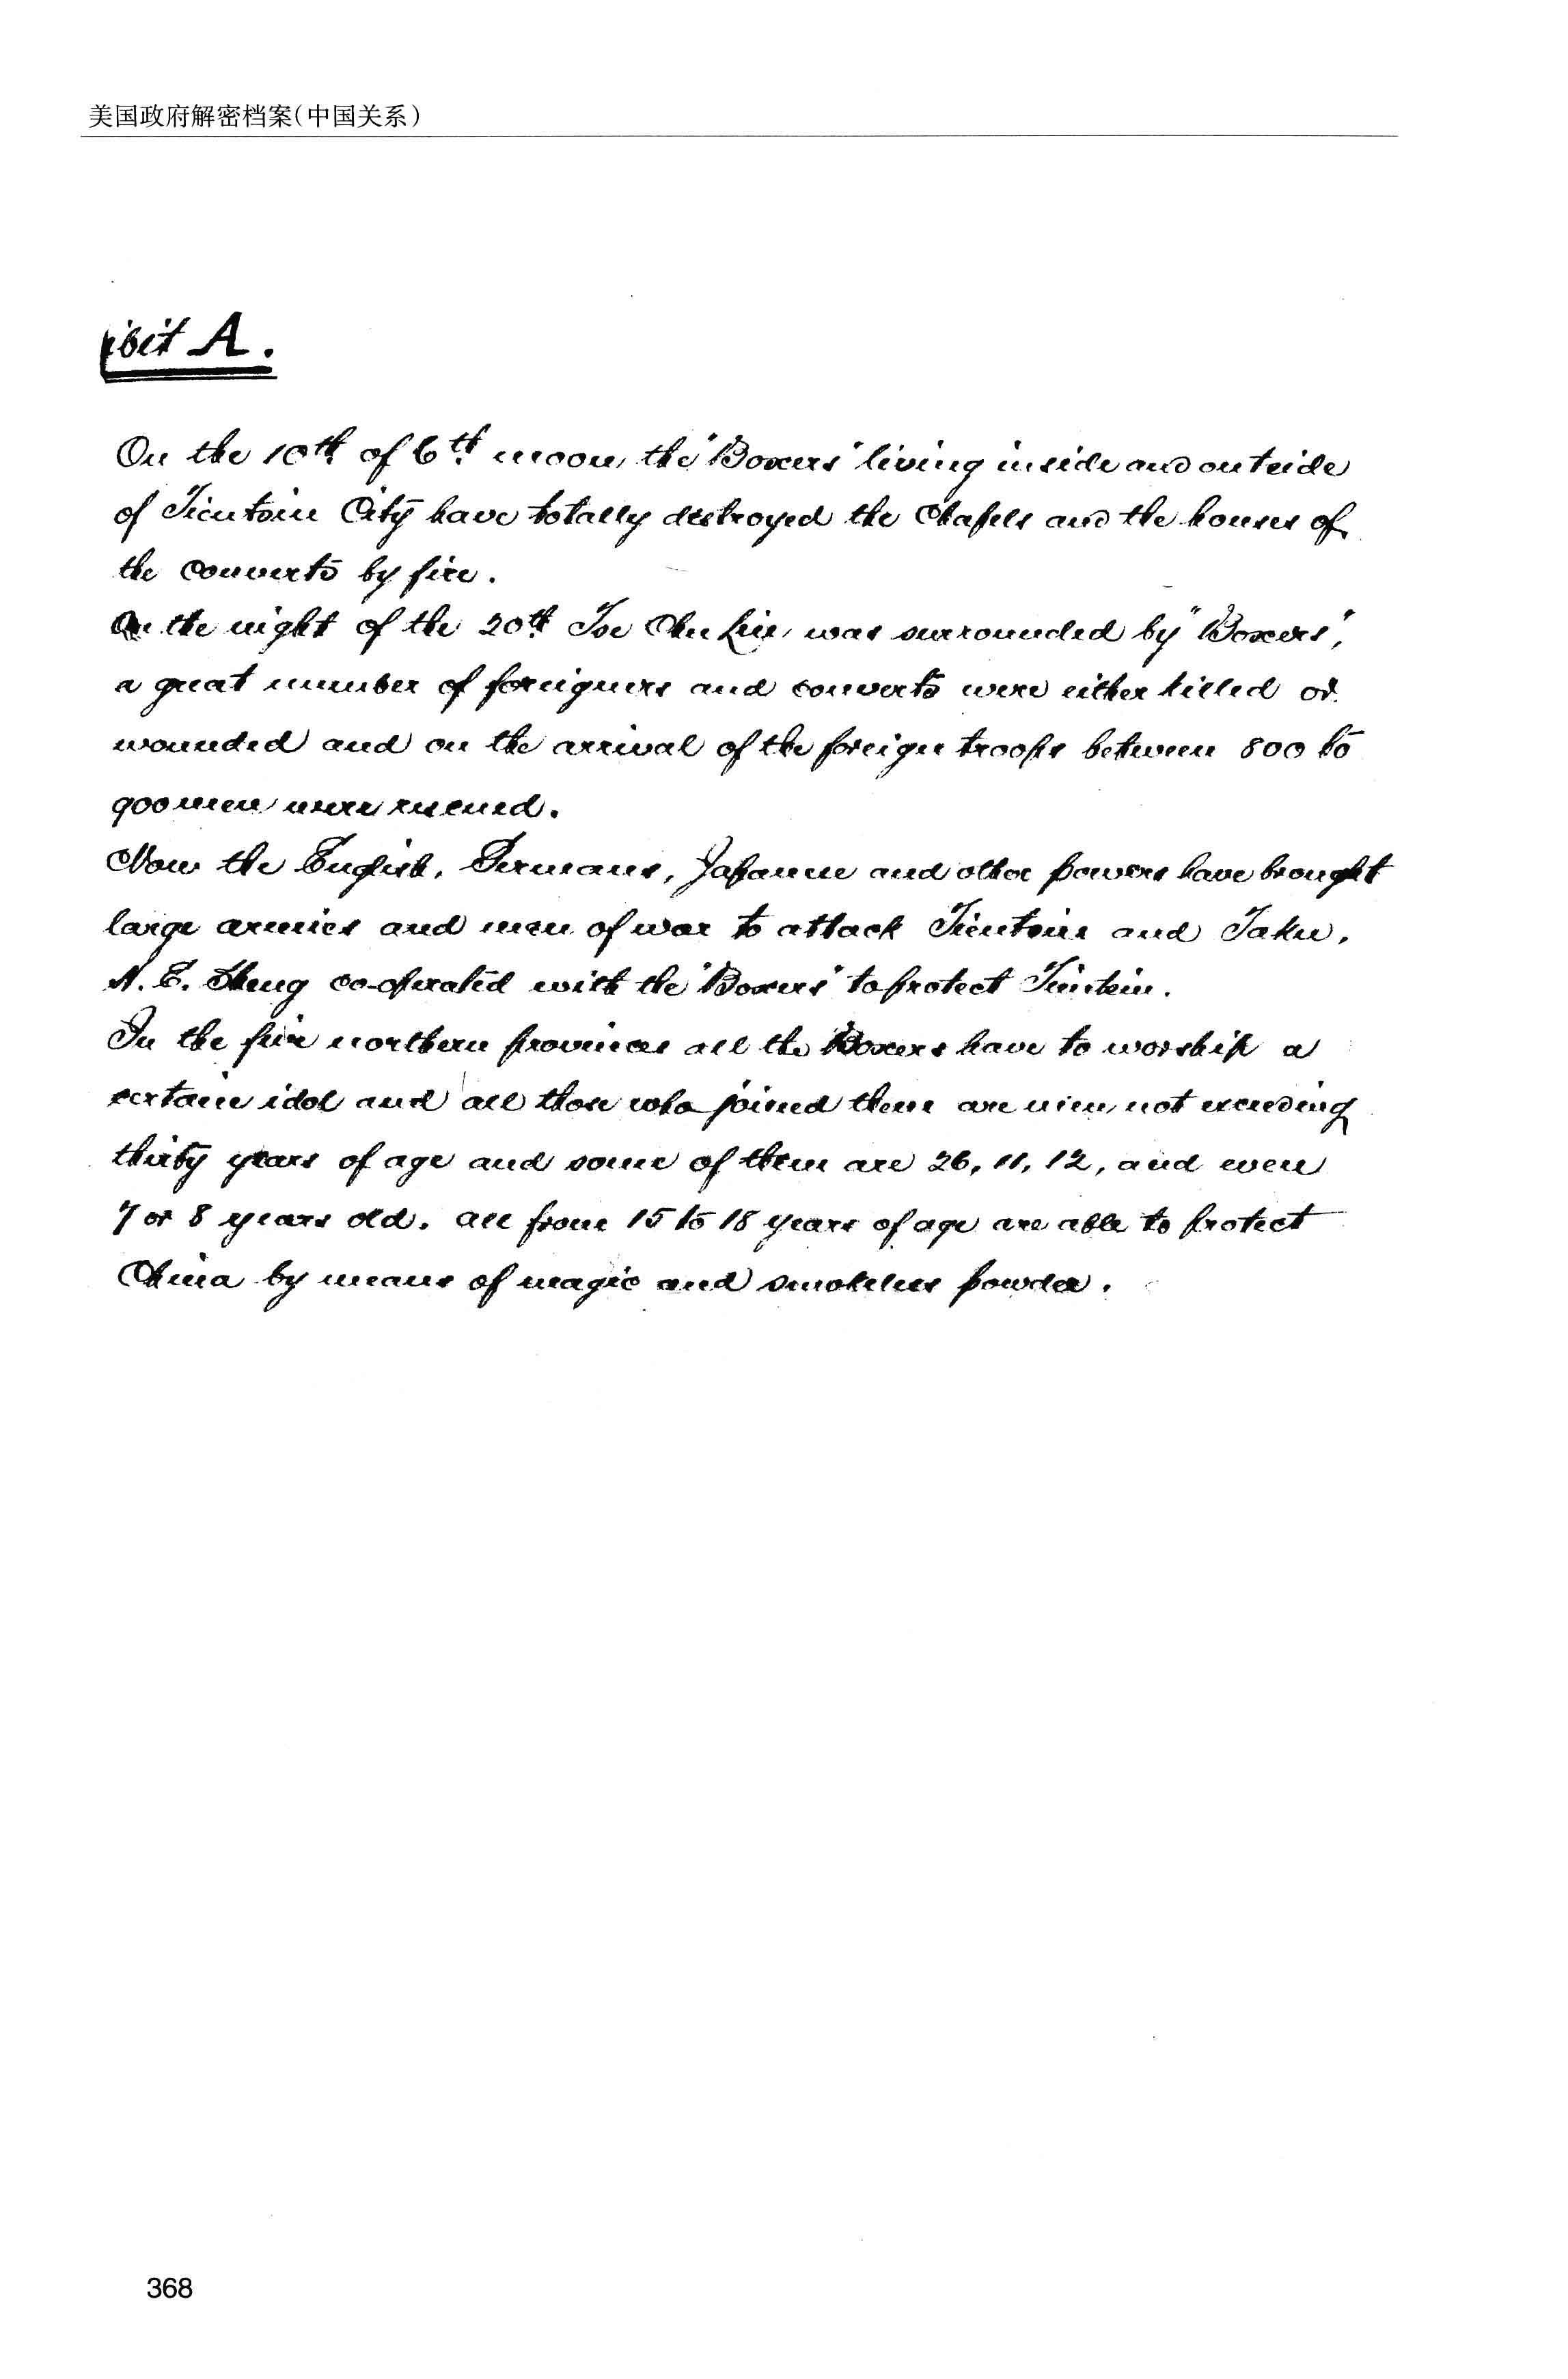 美国政府解密档案(中国关系)
ibit A.
On the 10th of 6th moon, the "Boxers" living inside and outside
of Tientsin City have totally destroyed the Chapels and the houses of
the converts by fire.
On the night of the 20th Tse Chu Lin, was surrounded by "Boxers",
a great number of foreigners and converts were either killed or
wounded and on the arrival of the foreign troops between 800 to
900 men were rescued.
Now the English, Germans, Japanese and other powers have brought
large armies and men of war to attack Tientsin and Taku.
H. E. Sheng co-operated with the "Boxers" to protect Tientsin.
In the five northern provinces all the Boxers have to worship a
certain idol and all those who joined them are men, not exceeding
thirty years of age and some of them are 26, 11, 12, and even
7 or 8 years old. All from 15 to 18 years of age are able to protect
China by means of magic and smokeless powder.
368